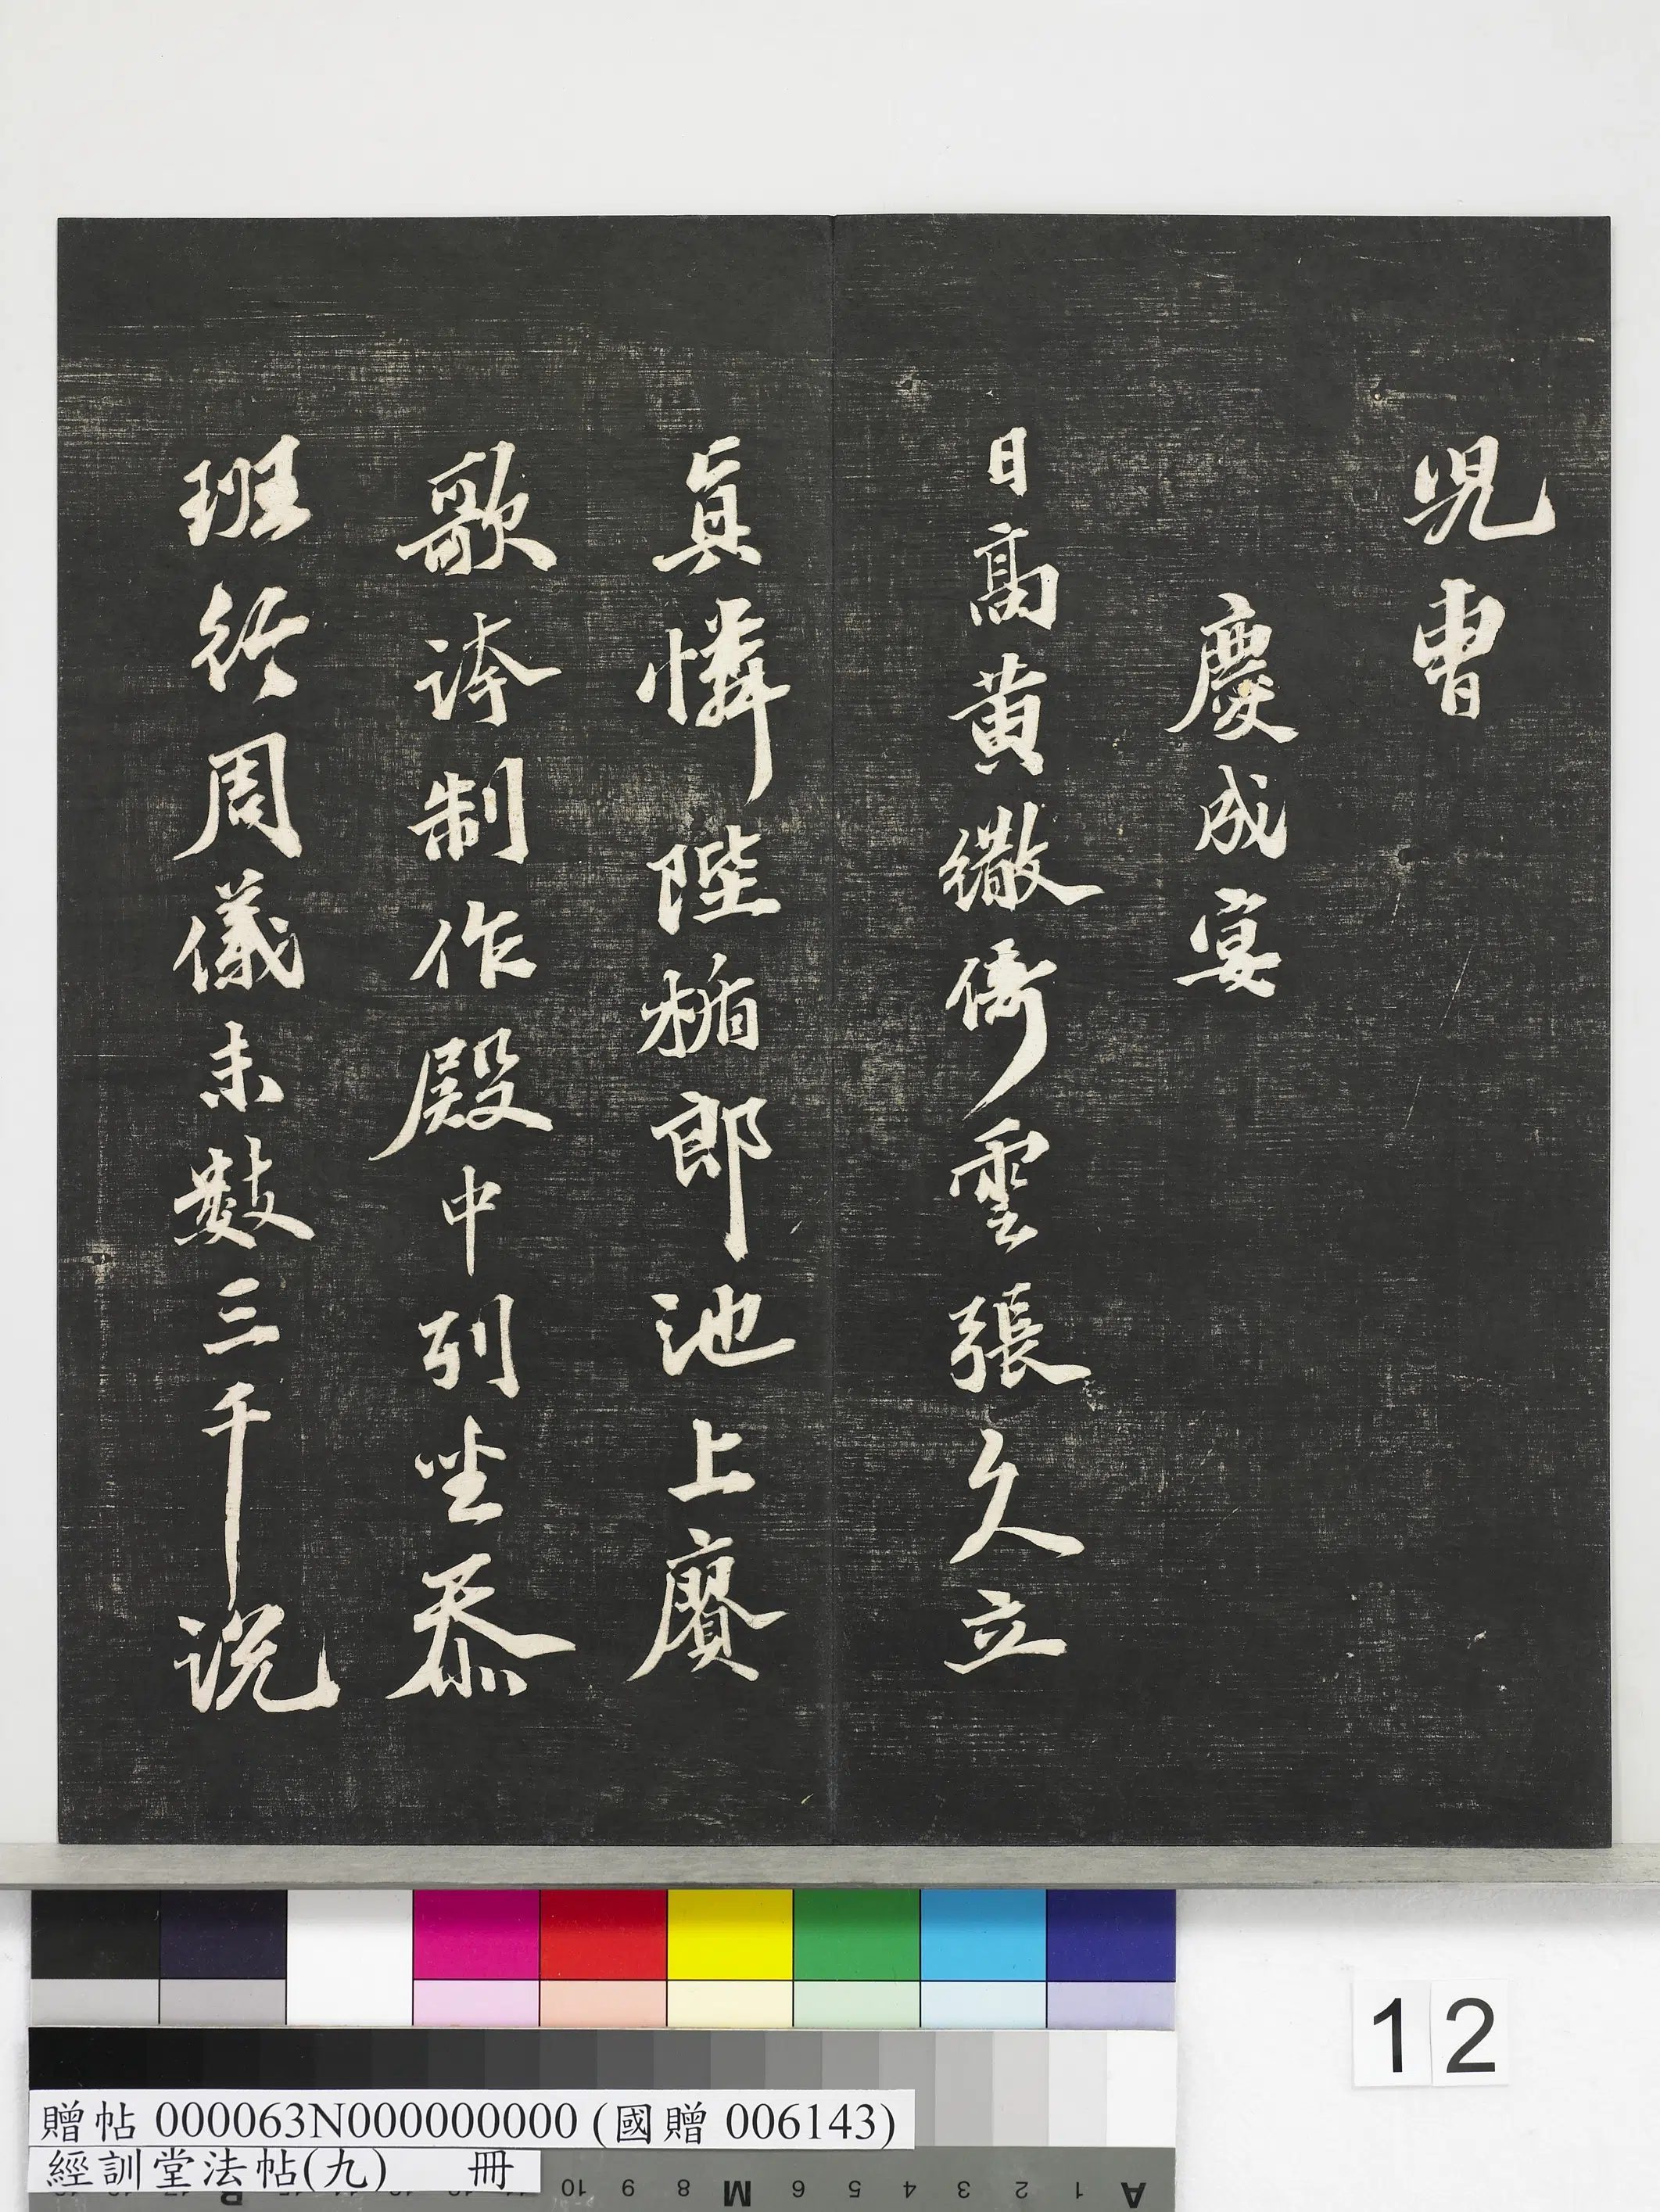 児曹
慶成宴
日高黄繖倚雲張久立
真憐陛楯郎池上賡
歌誇制作殿中列坐忝
班行周儀未數三千説
12
贈帖 000063N000000000 (國贈 006143)
經訓堂法帖(九) 冊
10 9 8 M 6 5 4 3 2 1 A